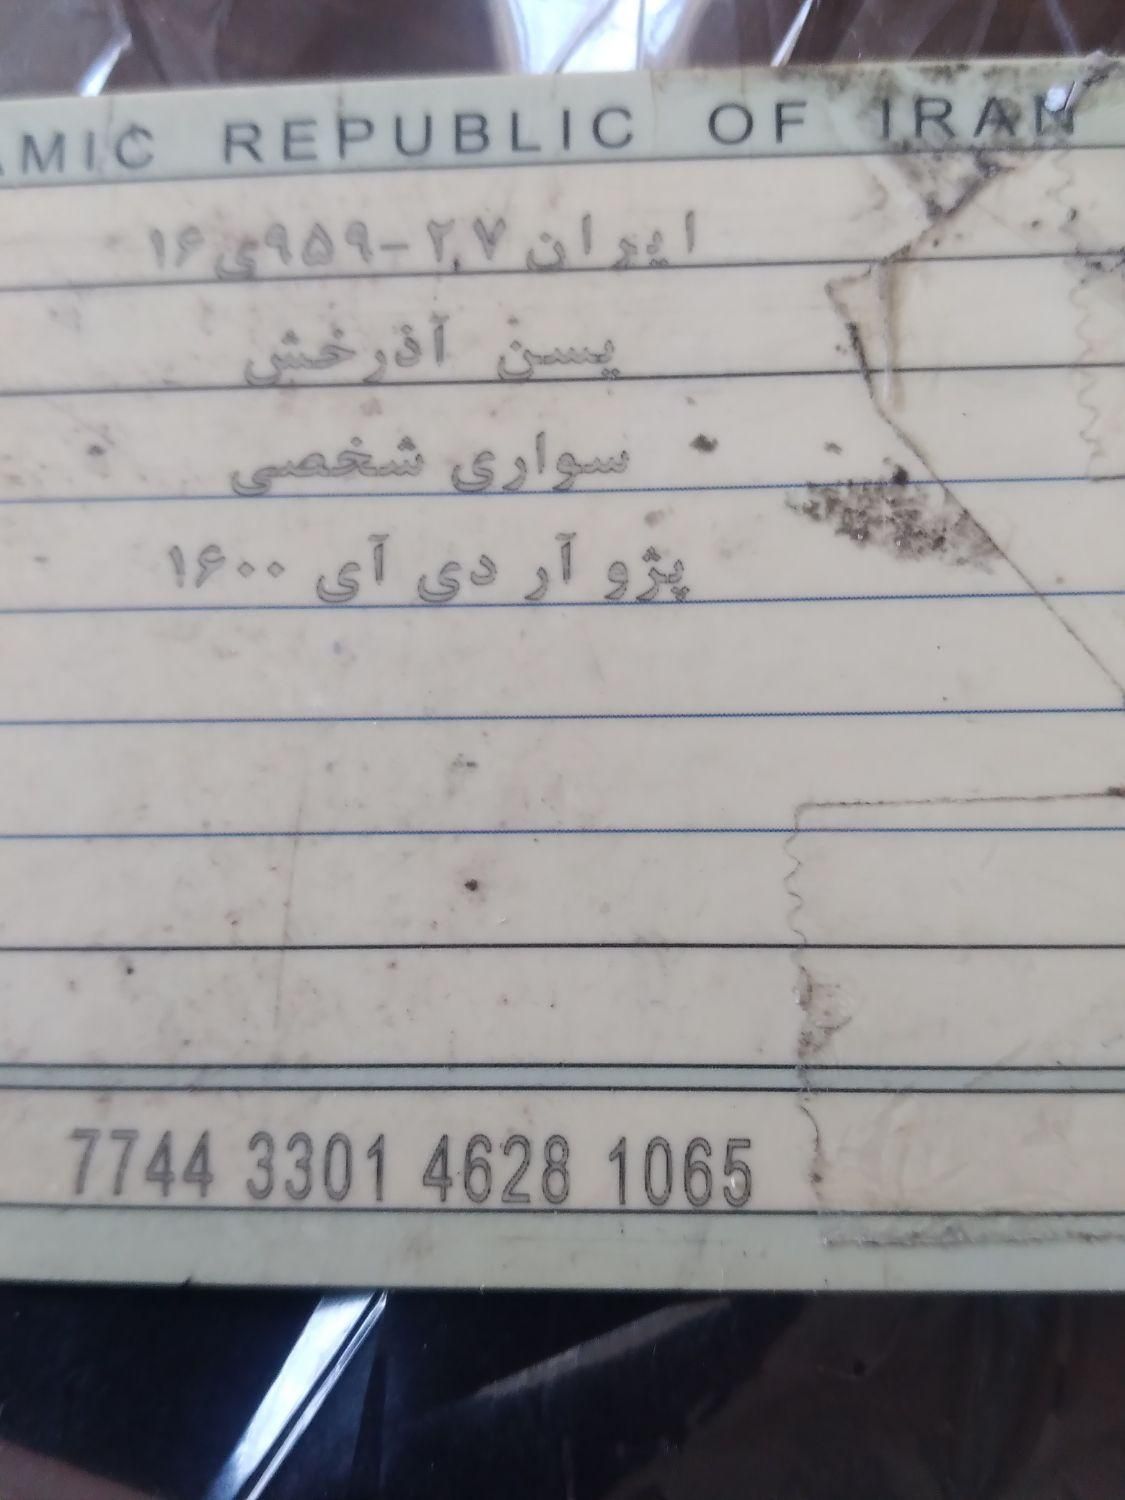 AMIC REPUBLIC OF IRAN
ایران ۲۷-۹۵۹ی۱۶
یسن آذرخش
سواری شخصی
پژو آر دی آی ۱۶۰۰
7744 3301 4628 1065